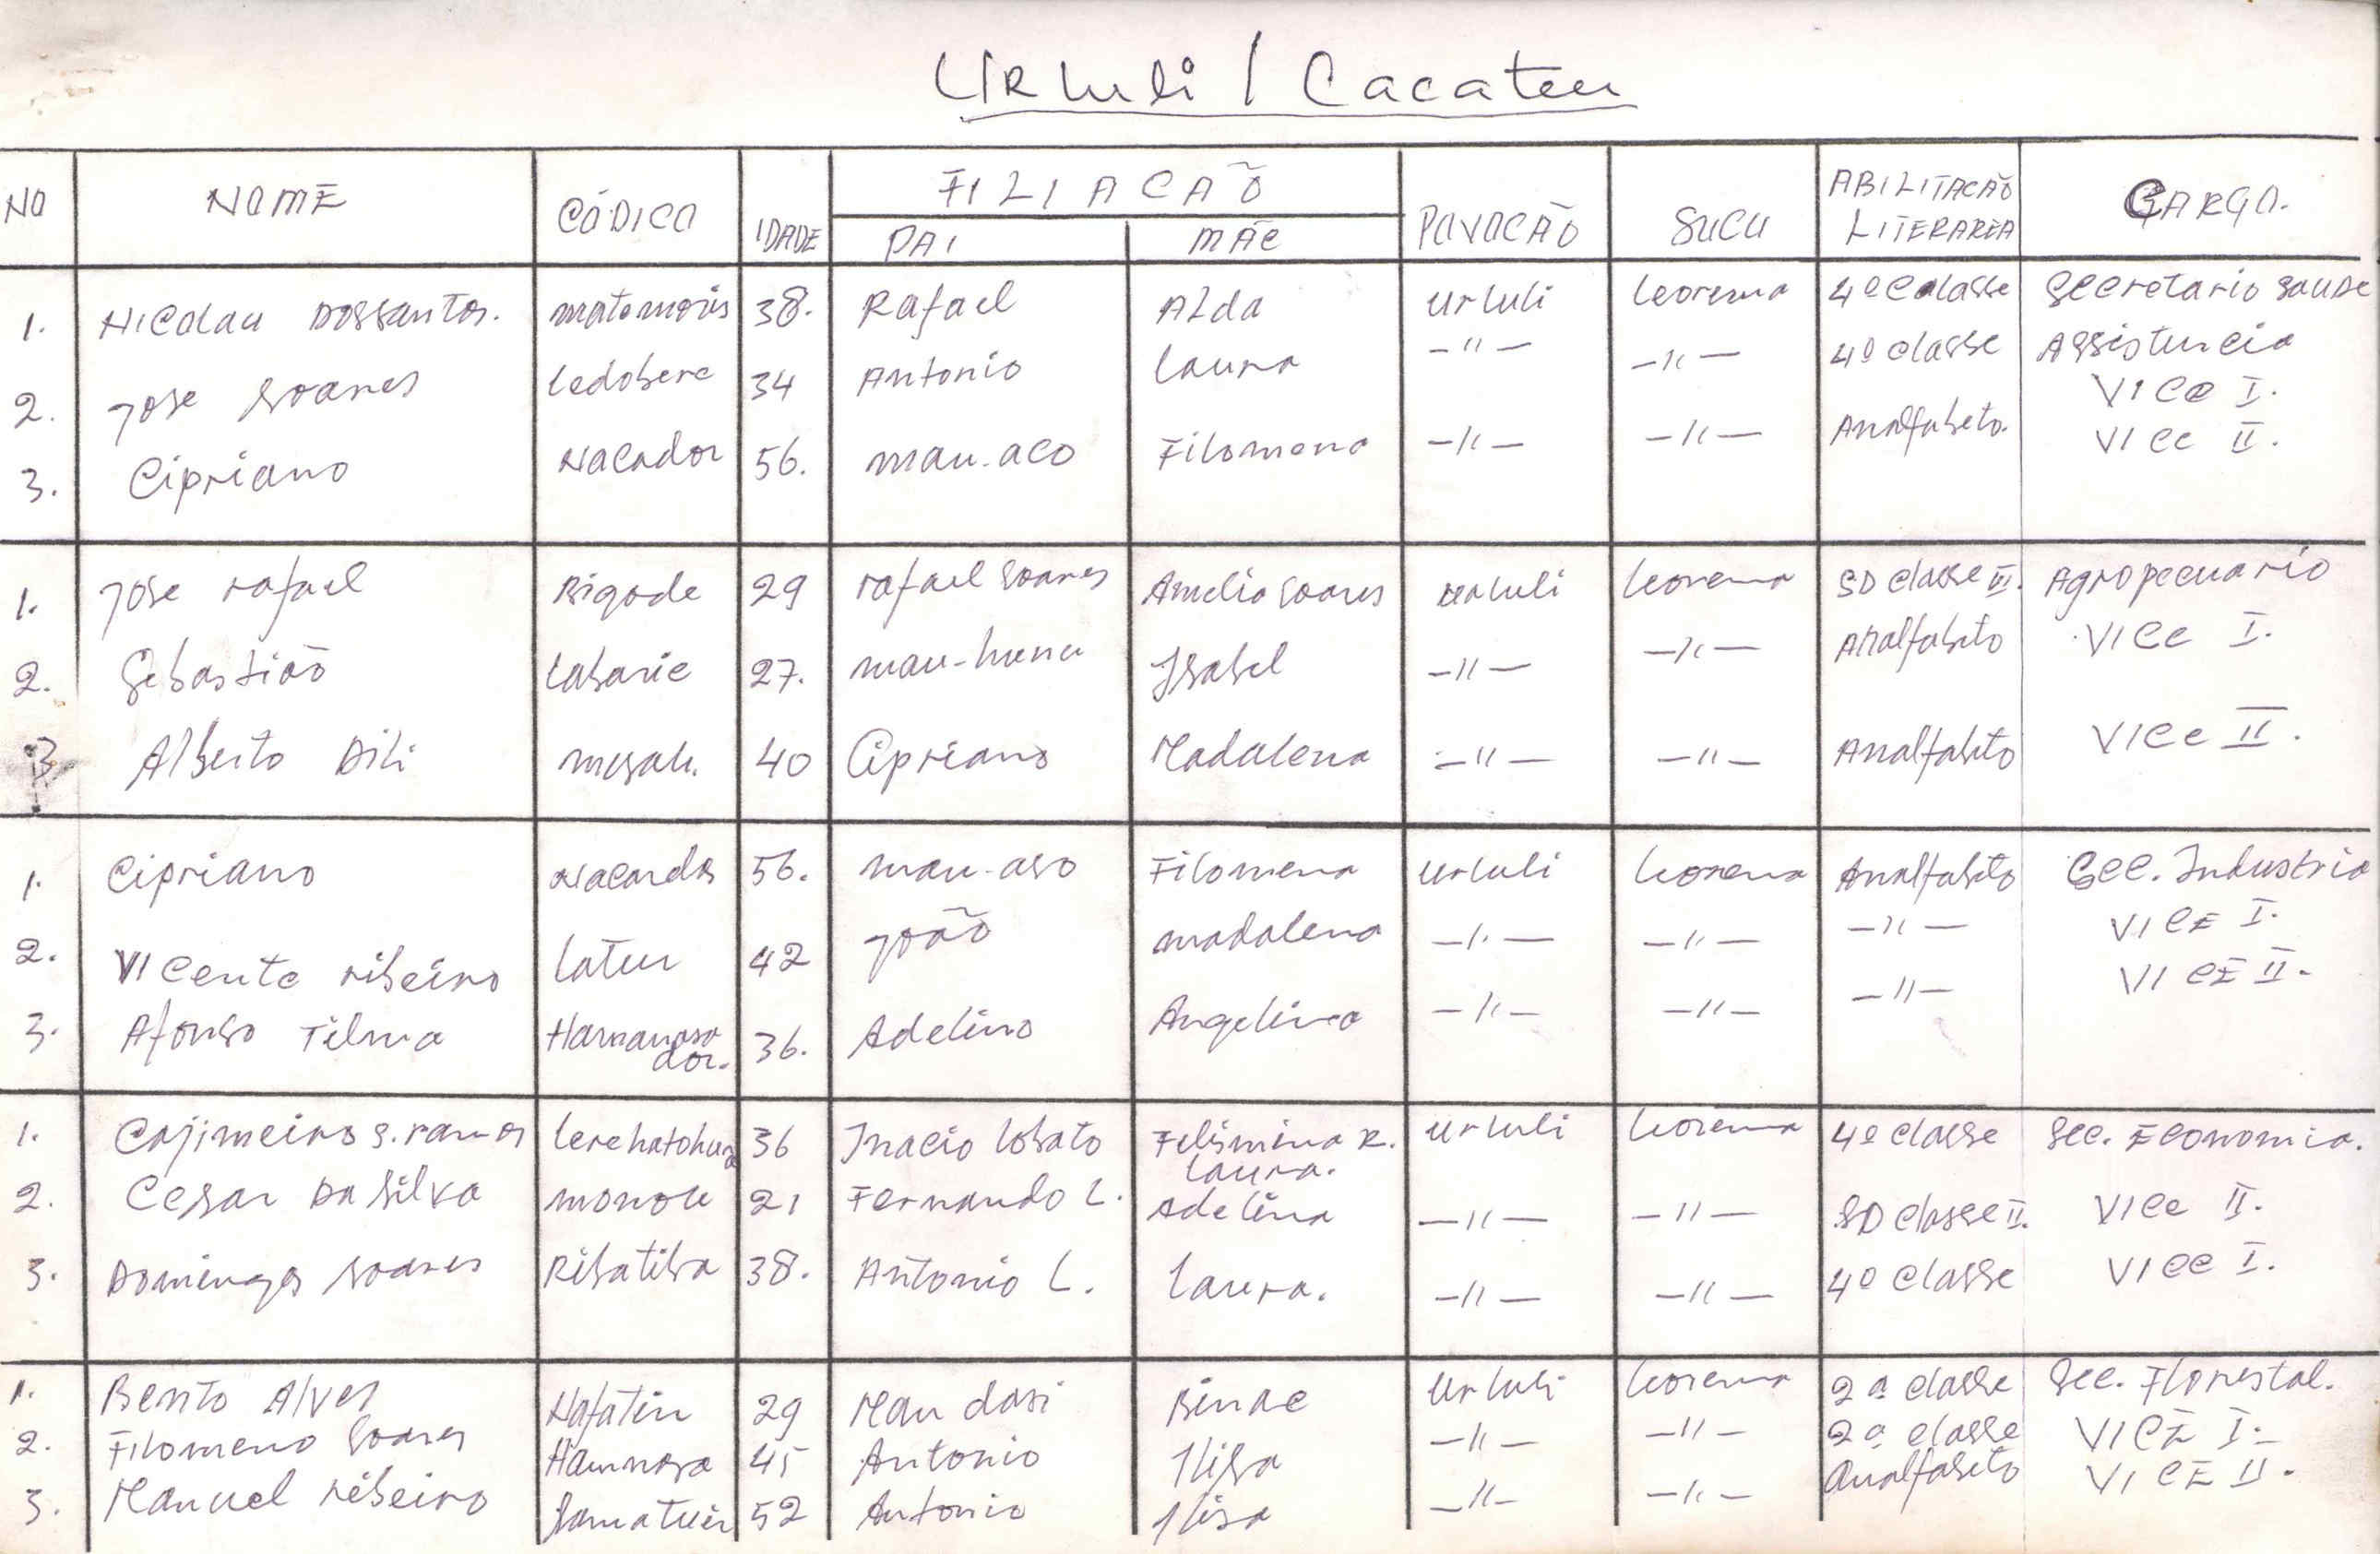 Urluli / Cacateu
NO NOME CÓDICO IDADE FILIACAÕ PAI MÃE POVOCÃO SUCU ABILITACAÕ LITERARIA CARGO.
1. Nicolau Dossantos. matomoris 38. Rafael Alda Urluli leorema 4º classe Secretario saude Assistencia
2. Jose Soares ledobere 34 Antonio laura -"- -"- 4º classe VICE I.
3. Cipriano Nacador 56. mau-aco Filomena -"- -"- Analfabeto. VICE II.
1. Jose rafael Bigode 29 rafael soares Amelia soares urluli leorema SD classe III. Agropecuario
2. Sebastiaõ labarie 27. mau-huna Isabel -"- -"- Analfabito VICE I.
3 Alberto Dili 40 Cipriano Madalena -"- -"- Analfabito VICE II.
1. Cipriano Nacardor 56. mau-aso Filomena Urluli leorema Analfabito Sec. Industria
2. Vicente ribeiro latur 42 Joaõ madalena -"- -"- -"- VICE I.
3. Afonso Tilma 36. Adelino Angelina -"- -"- -"- VICE II.
1. Cajimeiro s. ramos lerehatohuna 36 Inacio lobato Felismina R. Urluli leorema 4º classe Sec. Economia.
2. Cesar Da silva monote 21 Fernando L. laura. Adelina -"- -"- SD classe II. VICE II.
3. Domingos soares Ribatiba 38. Antonio L. laura. -"- -"- 4º classe VICE I.
1. Bento Alves Nafatin 29 Mau dasi Binae Urluli leorema 2ª classe Sec. Florestal.
2. Filomeno soares Hamnasa 45 Antonio Ilisa -"- -"- 2ª classe VICE I.
3. Manuel ribeiro 52 Antonio Ilisa -"- -"- Analfabito VICE II.